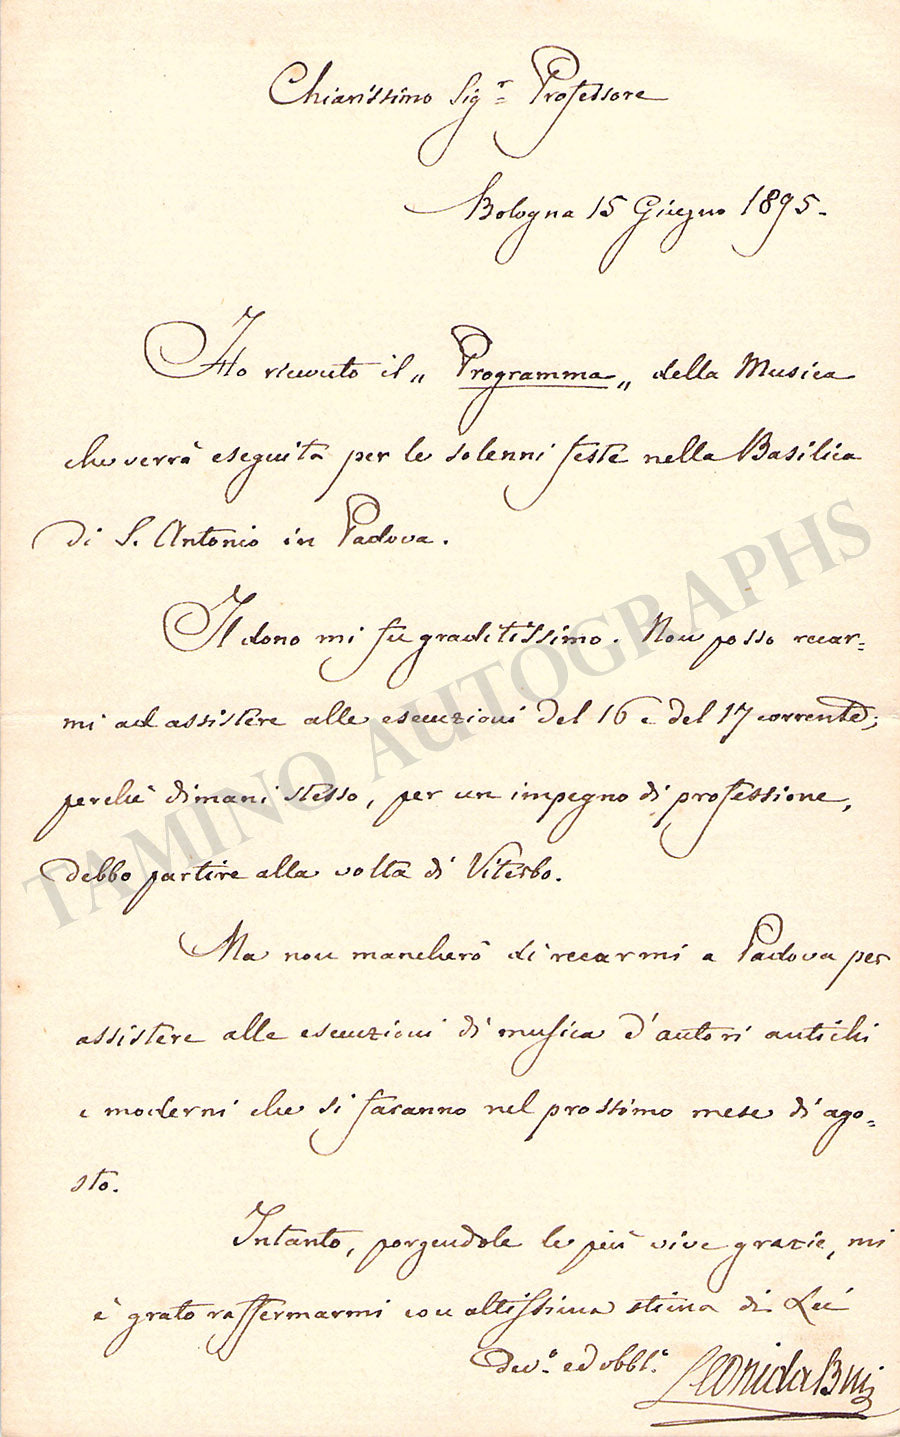 Chiarissimo Sigr. Professore
Bologna 15 Giugno 1895.
Ho ricevuto il „ Programma „ della Musica
che verrà eseguita per le solenni feste nella Basilica
di S. Antonio in Padova.
Il dono mi fu graditissimo. Non posso recar=
mi ad assistere alle esecuzioni del 16 e del 17 corrente;
perchè dimani stesso, per un impegno di professione,
debbo partire alla volta di Viterbo.
Ma non mancherò di recarmi a Padova per
assistere alle esecuzioni di musica d'autori antichi
e moderni che si faranno nel prossimo mese di ago=
sto.
Intanto, porgendole le più vive grazie, mi
è grato raffermarmi con altissima stima di Lei
Dev.o ed obbl.o Leonida Busi
TAMINO AUTOGRAPHS